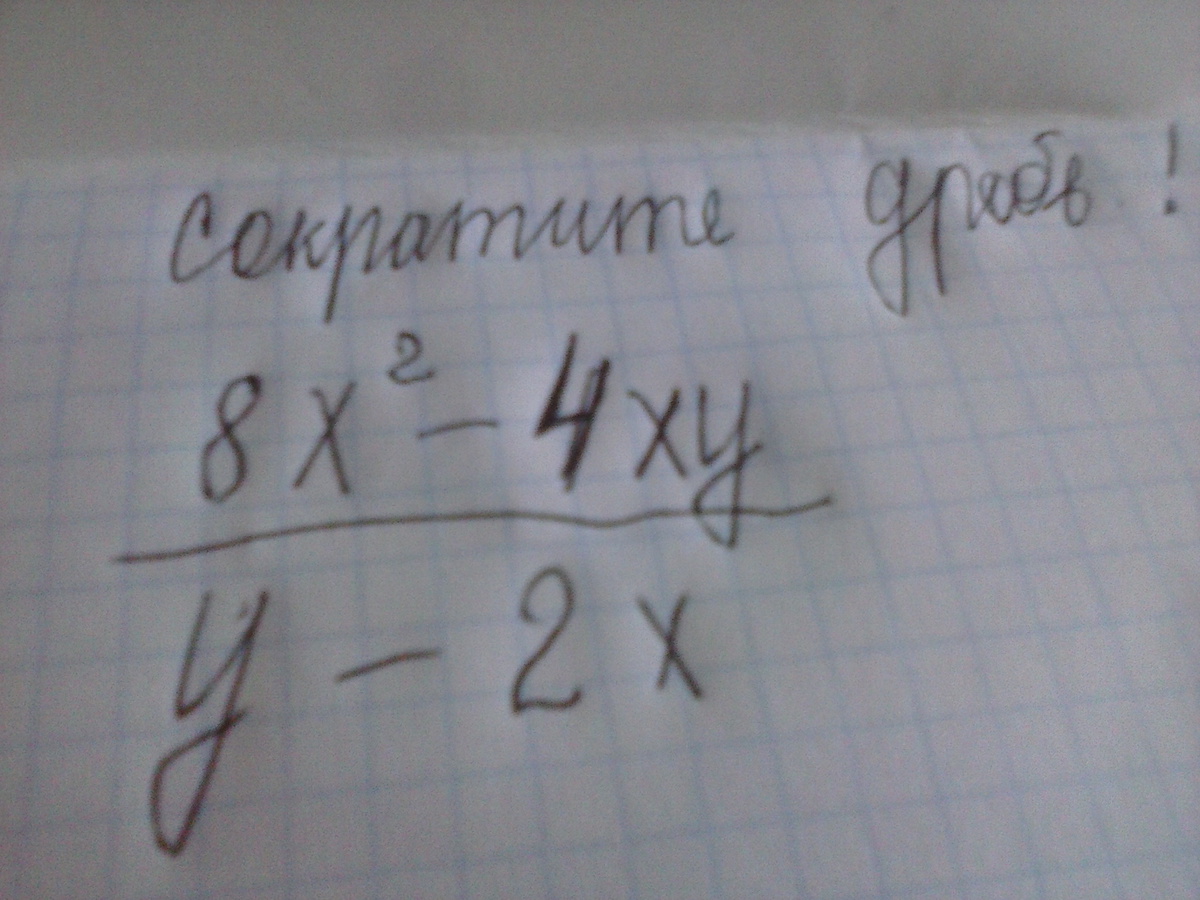 Сократите дробь!
8x² - 4xy
y - 2x